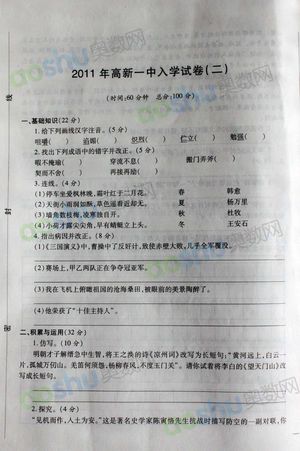 2011年高新一中入学试卷(二)
(时间:60分钟 总分:100分)
一、基础知识(22分)
1.给下列画线汉字注音。(5分)
哐嘴( ) 追溯( ) 炽烈( ) 伫立( ) 勉强( )
2.找出下列成语中的错字并改正。(5分)
暇不掩瑜( ) 穿流不息( ) 搬门弄斧( )
禊而不舍( ) 再接再励( )
3.连线。(4分)
(1)停车坐爱枫林晚,霜叶红于二月花。 春 韩愈
(2)天街小雨润如酥,草色遥看近却无。 夏 杨万里
(3)墙角数枝梅,凌寒独自开。 秋 杜牧
(4)小荷才露尖尖角,早有蜻蜓立上头。 冬 王安石
4.指出病因并改正。(8分)
(1)《三国演义》中,曹操中了反奸计,致使赤壁大败,几乎全军覆没。
(2)赛场上,甲乙两队正在争夺冠亚军。
(3)我在飞机上俯瞰祖国的沧海桑田,被眼前的美景陶醉了。
(4)他荣获了“十佳主持人”。
二、积累与运用(32分)
1.仿写。(10分)
明朝才子解缙急中生智,将王之涣的诗《凉州词》改写为长短句:“黄河远上,白云一
片,孤城万仞山。羌笛何须怨,杨柳春风,不度玉门关”。请你试着将李白的《望天门山》改
写成长短句。
2.探究。(4分)
“见机而作,入土为安。”这是著名史学家陈寅恪先生抗战时描写防空的一副对联,你
线
封
密
aoshu奥数网